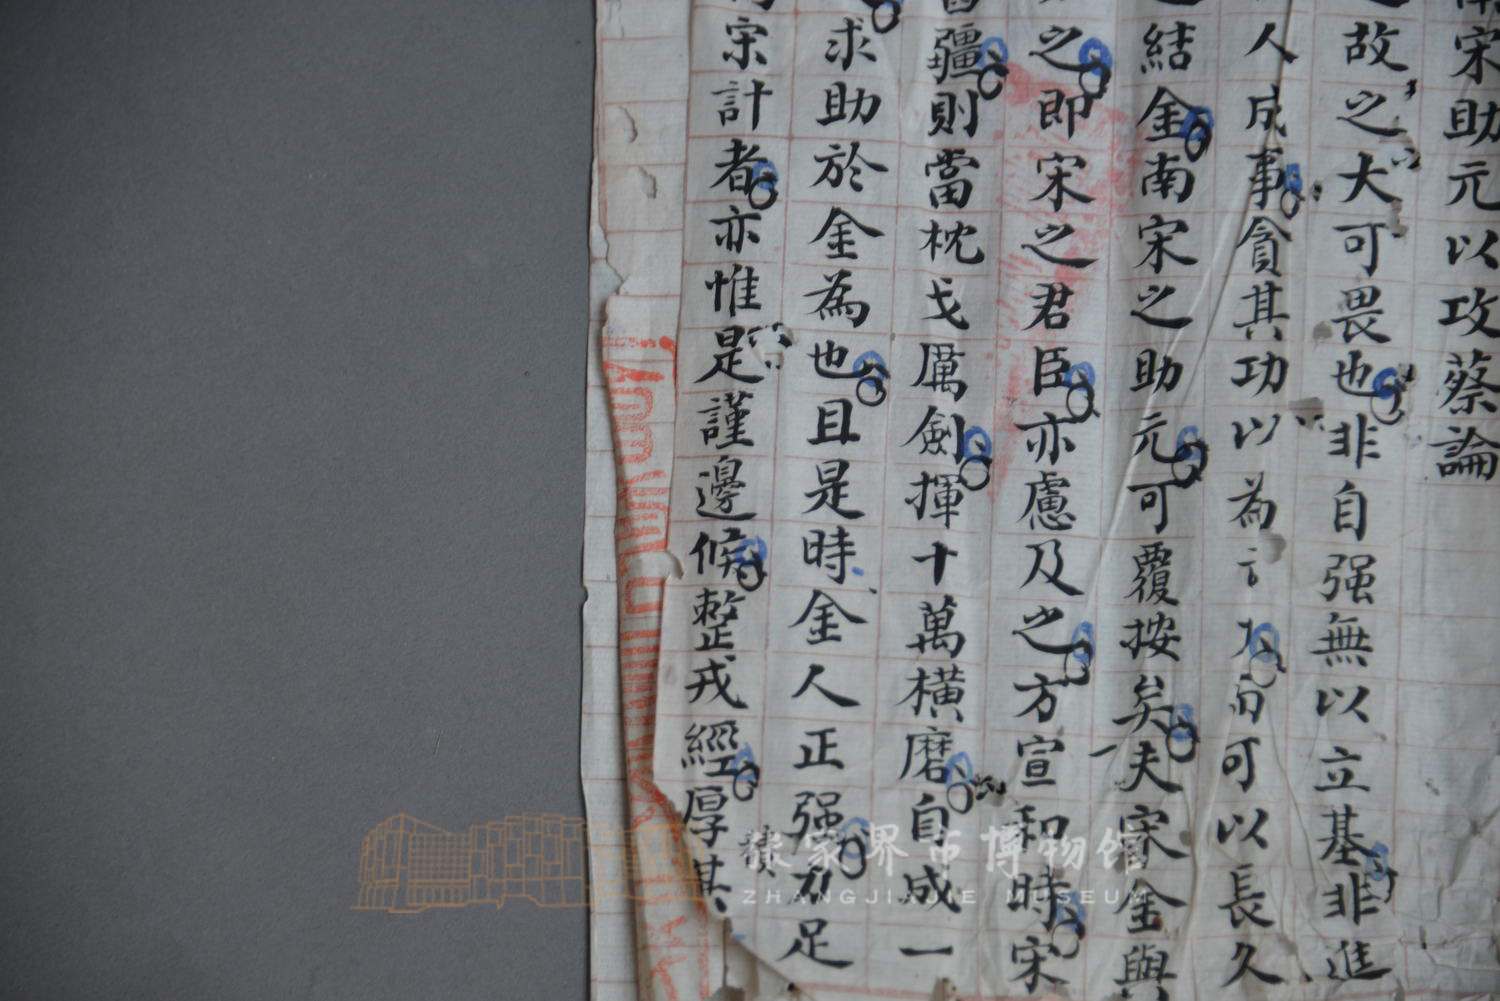 南宋助元以攻蔡論
之故之大可畏也非自强無以立基非進
人成事貪其功以為可以長久
結金南宋之助元可覆按矣夫宋金與
之即宋之君臣亦慮及之方宣和時宋
疆則當枕戈厲劍揮十萬橫磨自成一
求助於金為也且是時金人正强力足
宋計者亦惟是謹邊候整戎經厚其
張家界市博物館
ZHANGJIAJIE MUSEUM